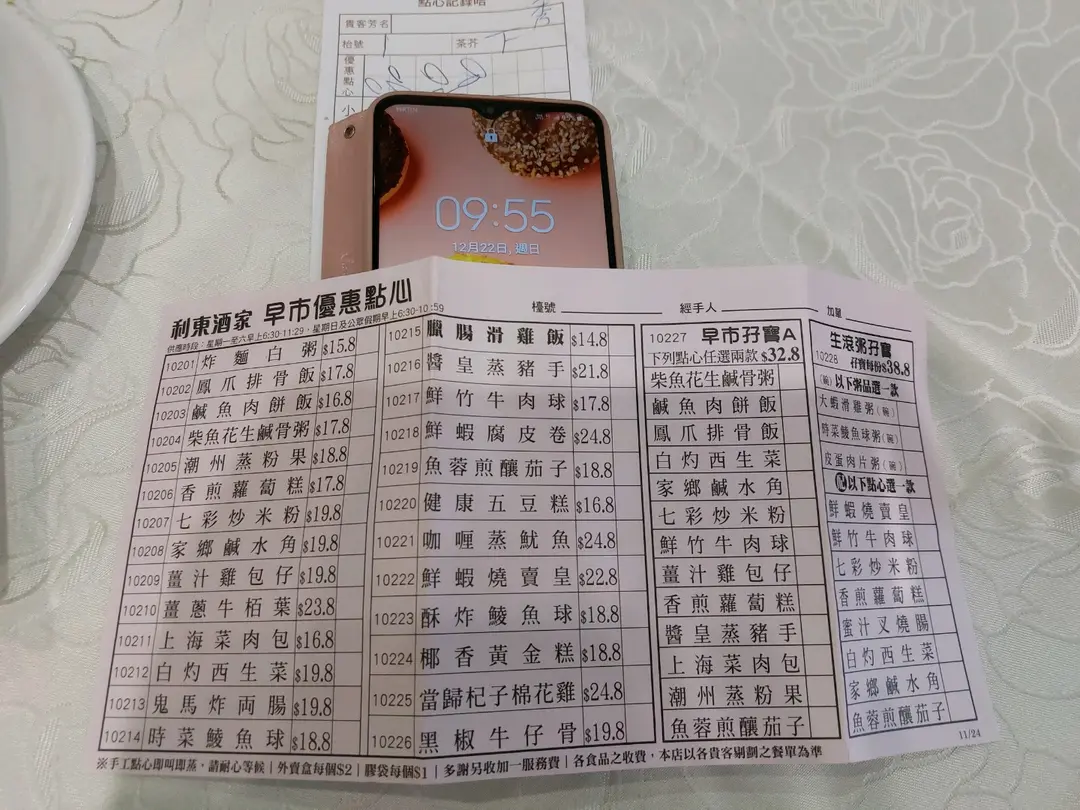 點心記錄咭
貴客芳名
枱號 1 茶芥
優惠點心
小
09:55
12月22日, 週日
利東酒家 早市優惠點心
供應時段：星期一至六早上6:30-11:29，星期日及公眾假期早上6:30-10:59
檯號
經手人
加單
10201 炸麵白粥 $15.8
10202 鳳爪排骨飯 $17.8
10203 鹹魚肉餅飯 $16.8
10204 柴魚花生鹹骨粥 $17.8
10205 潮州蒸粉果 $18.8
10206 香煎蘿蔔糕 $17.8
10207 七彩炒米粉 $19.8
10208 家鄉鹹水角 $19.8
10209 薑汁雞包仔 $19.8
10210 薑蔥牛栢葉 $23.8
10211 上海菜肉包 $16.8
10212 白灼西生菜 $19.8
10213 鬼馬炸両腸 $19.8
10214 時菜鯪魚球 $18.8
10215 臘腸滑雞飯 $14.8
10216 醬皇蒸豬手 $21.8
10217 鮮竹牛肉球 $17.8
10218 鮮蝦腐皮卷 $24.8
10219 魚蓉煎釀茄子 $18.8
10220 健康五豆糕 $16.8
10221 咖喱蒸魷魚 $24.8
10222 鮮蝦燒賣皇 $22.8
10223 酥炸鯪魚球 $18.8
10224 椰香黃金糕 $18.8
10225 當歸杞子棉花雞 $24.8
10226 黑椒牛仔骨 $19.8
10227 早市孖寶A
下列點心任選兩款 $32.8
柴魚花生鹹骨粥
鹹魚肉餅飯
鳳爪排骨飯
白灼西生菜
家鄉鹹水角
七彩炒米粉
鮮竹牛肉球
薑汁雞包仔
香煎蘿蔔糕
醬皇蒸豬手
上海菜肉包
潮州蒸粉果
魚蓉煎釀茄子
生滾粥孖寶
10228 孖寶每份$38.8
(碗)以下粥品選一款
大蝦滑雞粥(碗)
時菜鯪魚球粥(碗)
皮蛋肉片粥(碗)
配以下點心選一款
鮮蝦燒賣皇
鮮竹牛肉球
七彩炒米粉
香煎蘿蔔糕
蜜汁叉燒腸
白灼西生菜
家鄉鹹水角
魚蓉煎釀茄子
11/24
※手工點心即叫即蒸，請耐心等候 | 外賣盒每個$2 | 膠袋每個$1 | 多謝另收加一服務費 | 各食品之收費，本店以各貴客剔劃之餐單為準